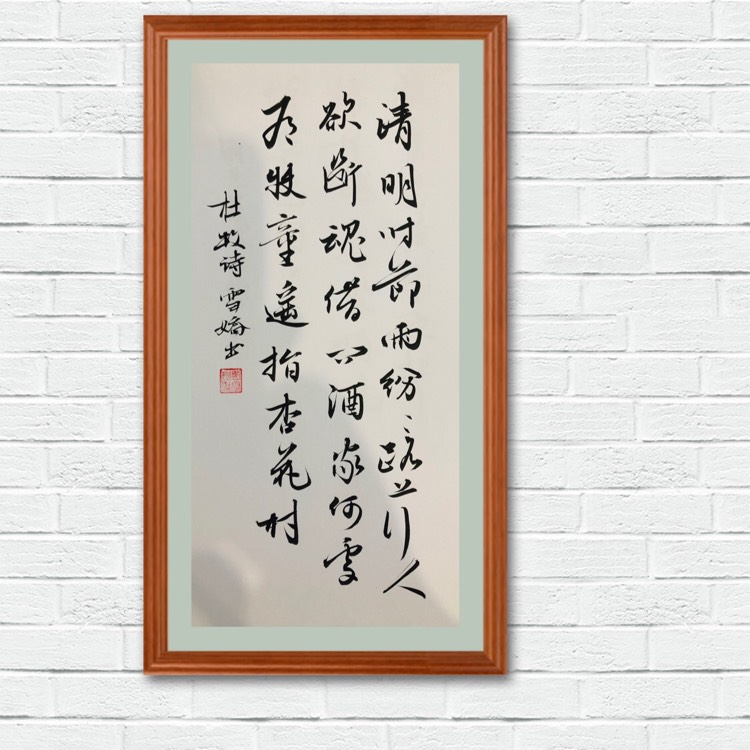 清明时節雨纷〻路上行人
欲斷魂借问酒家何處
有牧童遥指杏花村
杜牧诗 雪娇书